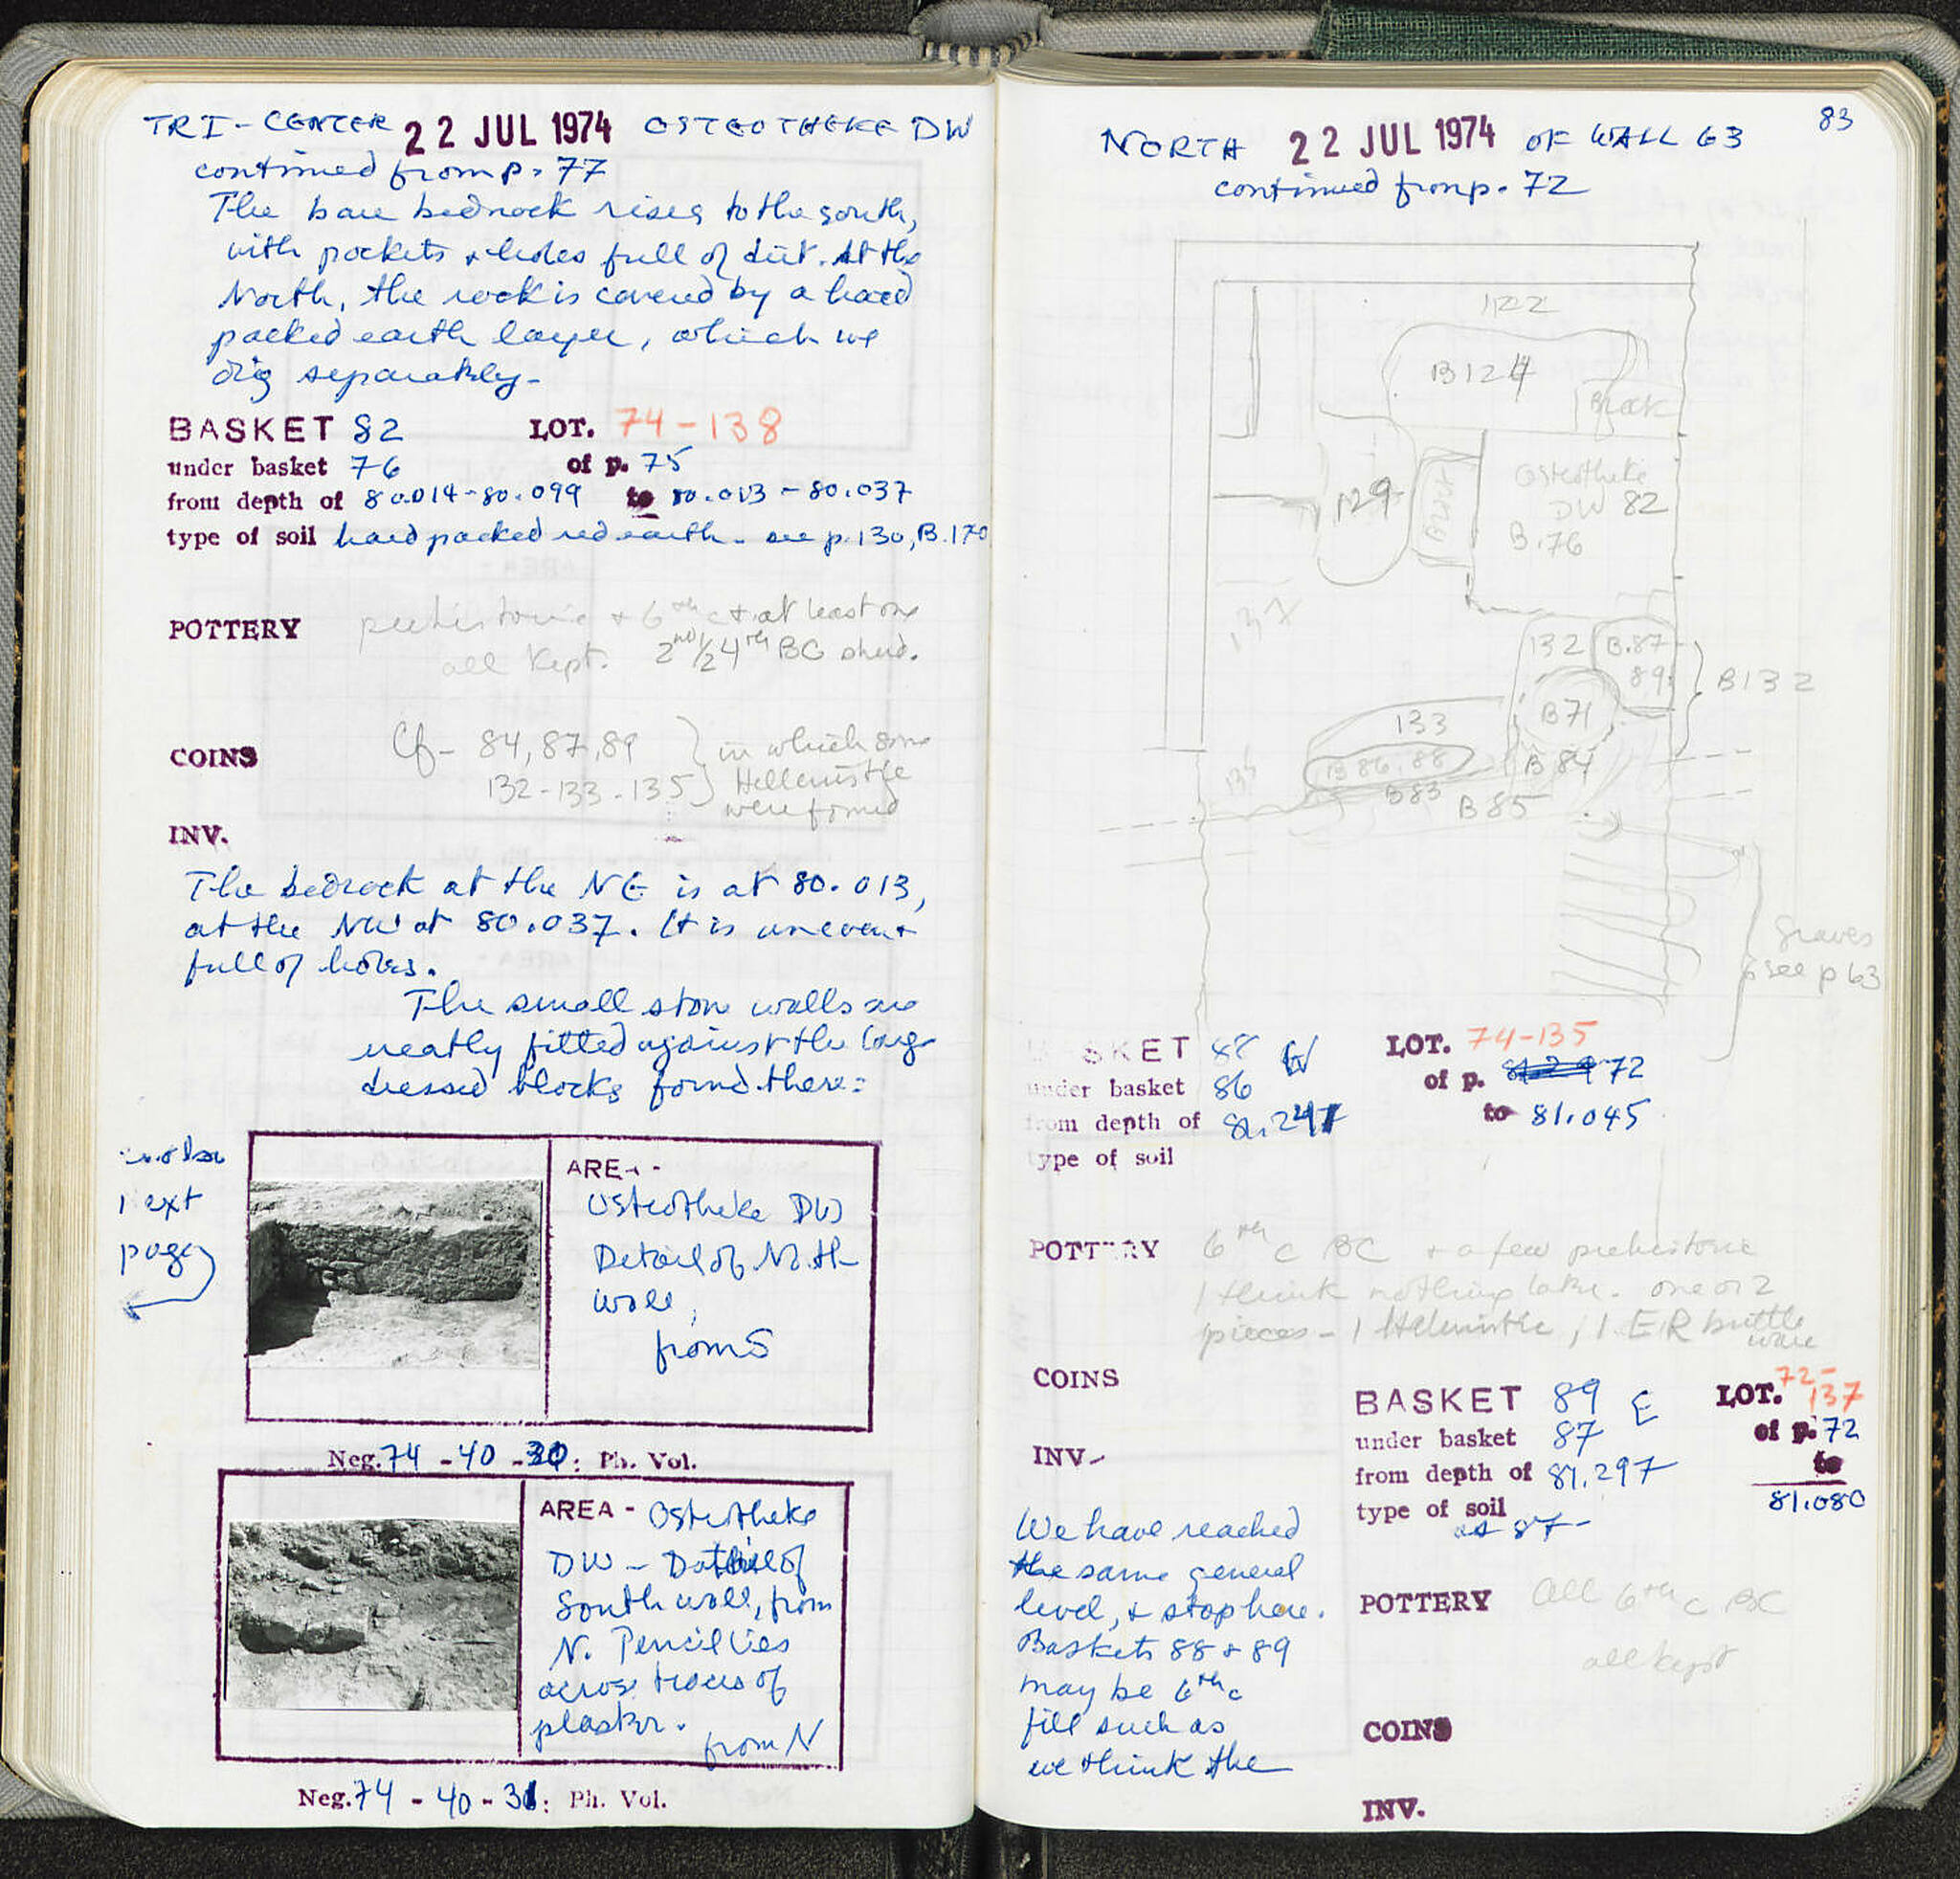 TRI-CENTER 22 JUL 1974 OSTEOTHEKE DW
continued from p. 77
The bare bedrock rises to the south,
with pockets & holes full of dirt. At the
North, the rock is covered by a hard
packed earth layer, which we
dig separately-
BASKET 82 LOT. 74-138
under basket 76 of p. 75
from depth of 80.014-80.099 to 80.013-80.037
type of soil hard packed red earth - see p. 130, B.170
POTTERY prehistoric + 6th c + at least one
all kept. 2nd/2 4th BC sherd.
COINS Cf- 84, 87, 89 } in which some
132-133-135 } Hellenistic
were found
INV.
The bedrock at the NE is at 80.013,
at the NW at 80.037. It is uneven +
full of holes.
The small stone walls are
neatly fitted against the large
dressed blocks found there:
next
page
AREA -
Osteotheke DW
Detail of North
wall,
from S
Neg. 74-40-30: Ph. Vol.
AREA - Osteotheke
DW - Detail of
South wall, from
N. Pencil lies
across traces of
plaster.
from N
Neg. 74-40-31: Ph. Vol.
83
NORTH 22 JUL 1974 OF WALL 63
continued from p. 72
122
B124
Block
129
Block
Osteotheke
DW 82
B.76
137
132 B.87
89 } B132
B71
133
B86.88
B84
B83
B85
135
Graves
see p 63
BASKET 88 W LOT. 74-135
under basket 86 of p. 72
from depth of 81.247 to 81.045
type of soil
POTTERY 6th c BC + a few prehistoric
I think nothing later. one or 2
pieces - 1 Hellenistic, 1 ER brittle
ware
COINS
INV-
BASKET 89 E LOT. 72-137
under basket 87 of p. 72
from depth of 81.297 to
81.080
type of soil
as 87-
POTTERY All 6th c BC
all kept
COINS
INV.
We have reached
the same general
level, & stop here.
Baskets 88 & 89
may be 6th c
fill such as
we think the